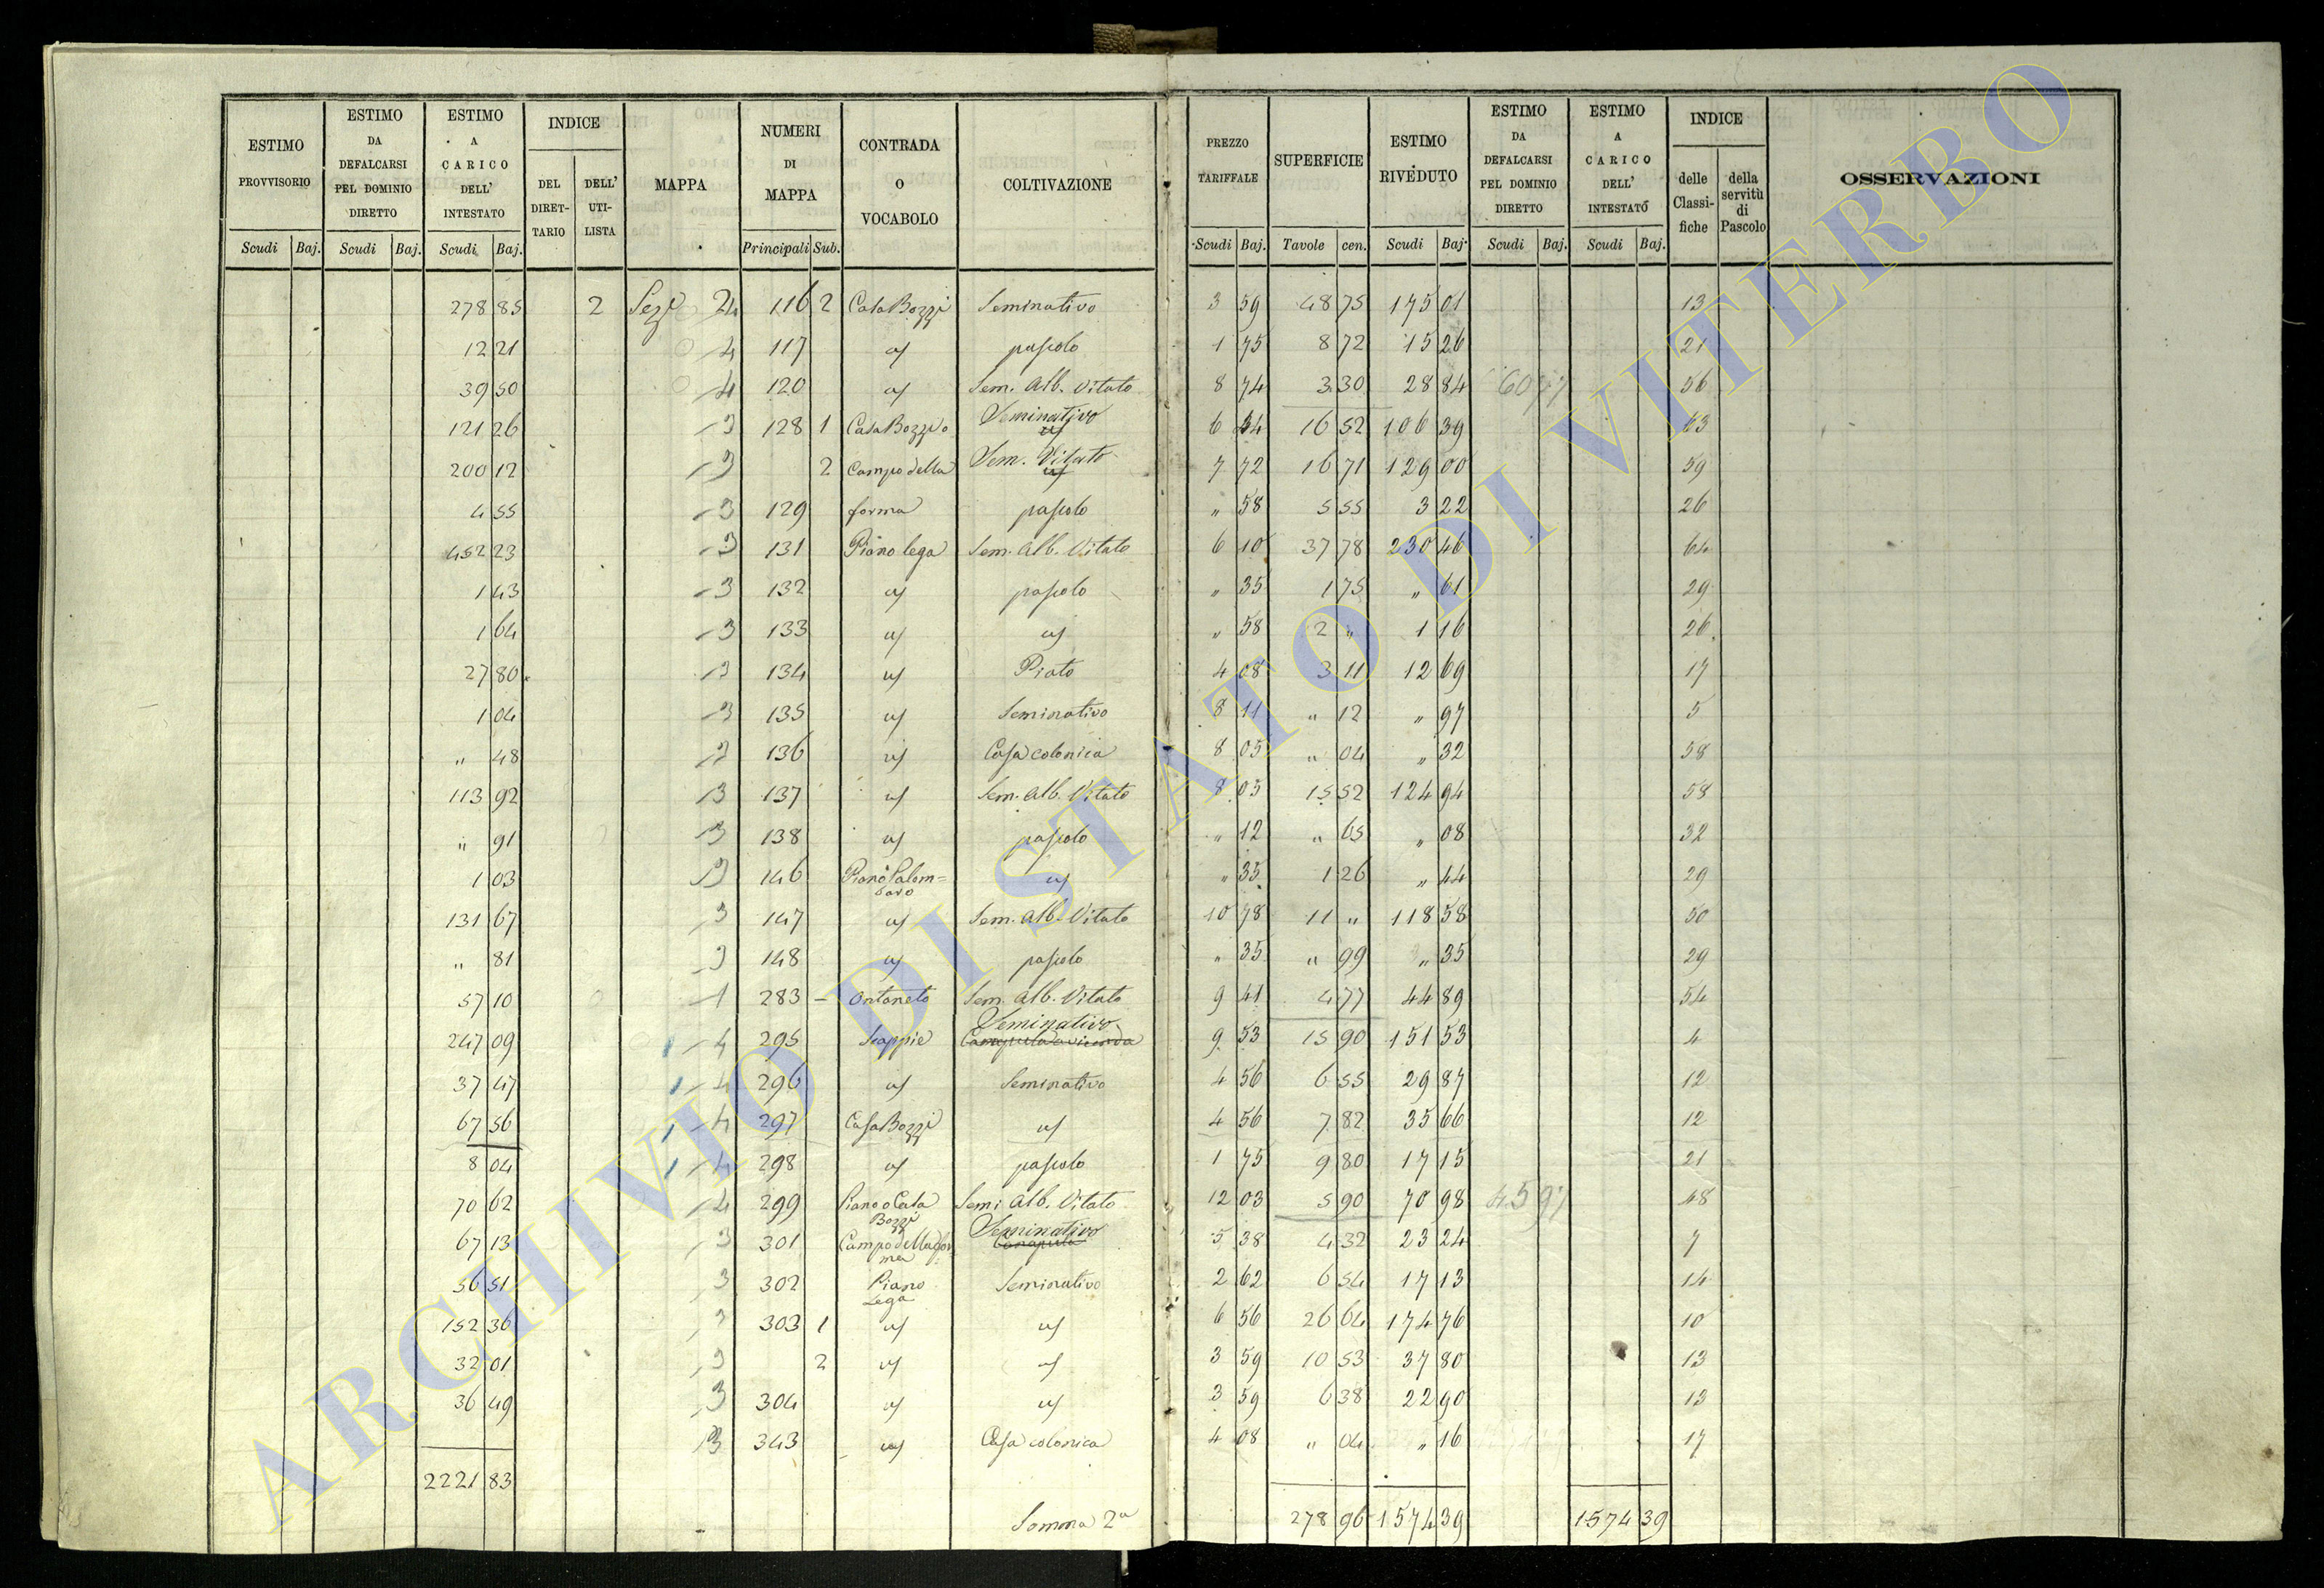 ESTIMO PROVVISORIO Scudi Baj.
ESTIMO DA DEFALCARSI PEL DOMINIO DIRETTO Scudi Baj.
ESTIMO A CARICO DELL' INTESTATO Scudi Baj.
INDICE DEL DIRET-TARIO DELL' UTI-LISTA
MAPPA
NUMERI DI MAPPA Principali Sub.
CONTRADA O VOCABOLO
COLTIVAZIONE
PREZZO TARIFFALE Scudi Baj.
SUPERFICIE Tavole cen.
ESTIMO RIVEDUTO Scudi Baj.
ESTIMO DA DEFALCARSI PEL DOMINIO DIRETTO Scudi Baj.
ESTIMO A CARICO DELL' INTESTATO Scudi Baj.
INDICE delle Classi-fiche della servitù di Pascolo
OSSERVAZIONI
278 85 2 24 116 2 Casa Bozzi Seminativo 3 59 48 75 175 01 13
12 21 4 117 pascolo 1 75 8 72 15 26 21
39 50 4 120 Sem. Alb. Vitato 8 74 3 30 28 84 56
121 26 3 128 1 Casa Bozzi o Seminativo 6 44 16 52 106 39 63
200 12 3 2 Campo della Sem. Vitato 7 72 16 71 129 00 59
4 55 3 129 forma pascolo " 58 5 55 3 22 26
452 23 3 131 Piano lega Sem. Alb. Vitato 6 10 37 78 230 46 64
1 43 3 132 pascolo " 35 1 75 " 61 29
1 64 3 133 " 58 2 " 1 16 26
27 80 3 134 Prato 4 08 3 11 12 69 17
1 04 3 135 Seminativo 8 11 " 12 " 97 5
" 48 3 136 Casa colonica 8 05 " 04 " 32 58
113 92 3 137 Sem. Alb. Vitato 8 05 15 52 124 94 58
" 91 3 138 pascolo " 12 " 65 " 08 32
1 03 3 146 Piano Palom=baro " 35 1 26 " 44 29
131 67 3 147 Sem. Alb. Vitato 10 78 11 " 118 58 50
" 81 3 148 pascolo " 35 " 99 " 35 29
57 10 1 283 Ontaneto Sem. Alb. Vitato 9 41 4 77 44 89 54
247 09 1 4 295 Scappie Seminativo 9 53 15 90 151 53 4
37 47 1 4 296 Seminativo 4 56 6 55 29 87 12
67 56 1 4 297 Casa Bozzi 4 56 7 82 35 66 12
8 04 1 4 298 pascolo 1 75 9 80 17 15 21
70 62 4 299 Piano o Casa Bozzi Semi Alb. Vitato 12 03 5 90 70 98 45 97 48
67 13 3 301 Campo della forma Seminativo Canapula 5 38 4 32 23 24 7
56 51 3 302 Piano Lega Seminativo 2 62 6 54 17 13 14
152 36 3 303 1 6 56 26 64 174 76 10
32 01 3 2 3 59 10 53 37 80 13
36 49 3 304 3 59 6 38 22 90 13
3 343 Casa colonica 4 08 " 04 " 16 17
2221 83
Somma 2a 278 96 1574 39 1574 39
ARCHIVIO DI STATO DI VITERBO